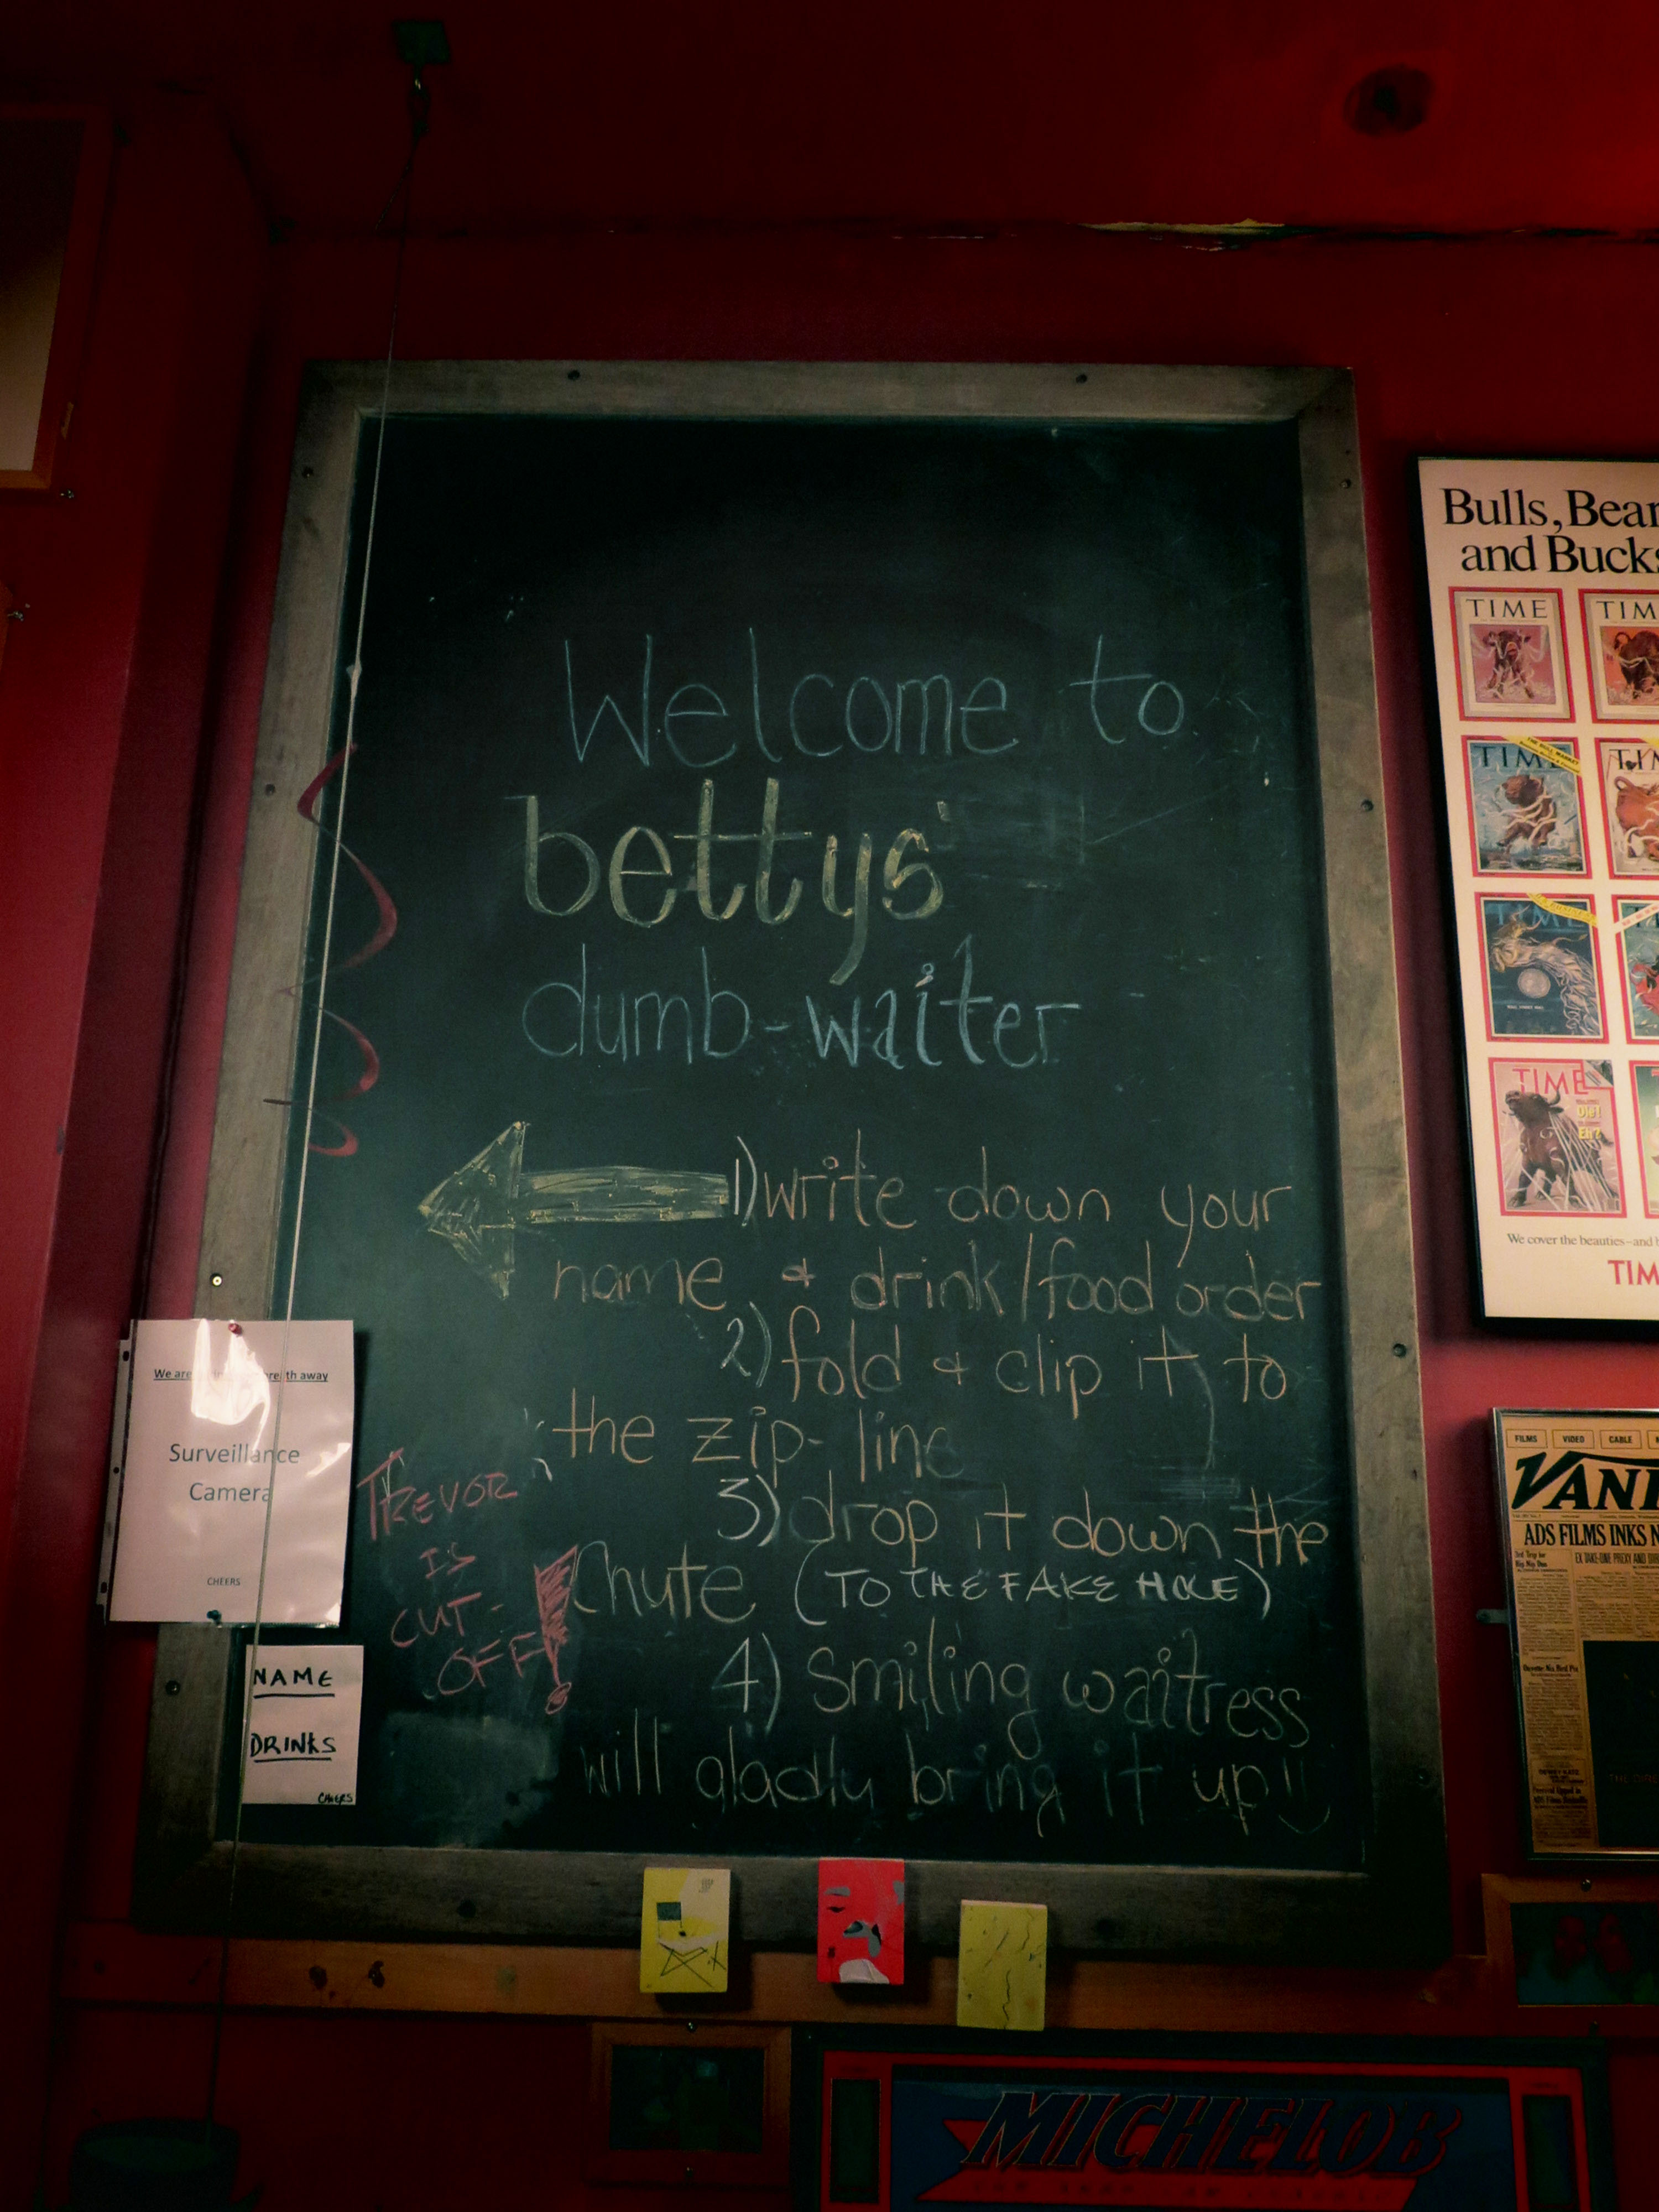 Welcome to
bettys'
dumb-waiter
1) write down your
name & drink/food order
2) fold & clip it to
the zip-line
3) drop it down the
Chute (TO THE FAKE HOLE)
4) Smiling waitress
will gladly bring it up!!
TREVOR
IS
CUT-
OFF!
We are away
Surveillance
Camera
CHEERS
NAME
DRINKS
CHEERS
Bulls, Bear
and Bucks
TIME
TIM
TIME
TIM
TIME
TIME
Die?
Eh?
We cover the beauties—and
TIM
FILMS VIDEO CABLE
VANI
ADS FILMS INKS N
MICHELOB